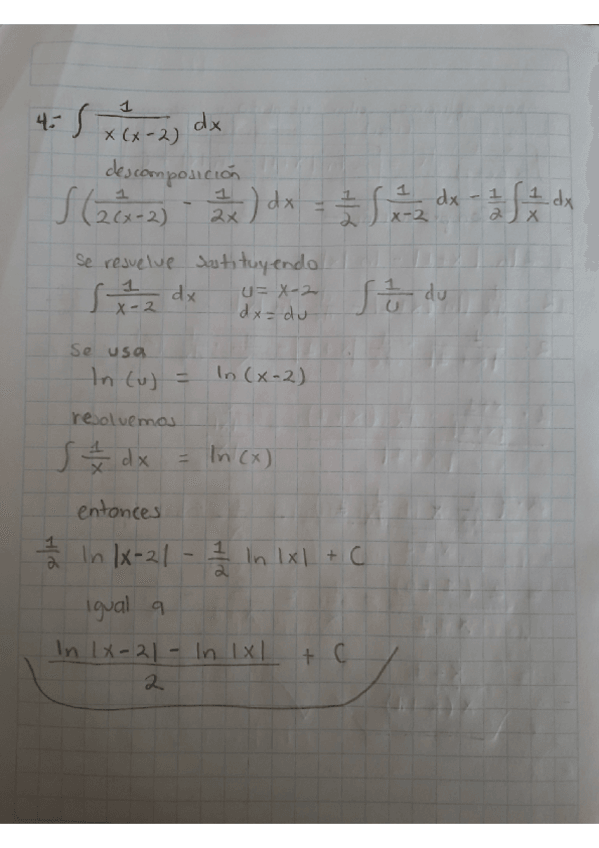 4.- ∫ 1/(x(x-2)) dx
descomposición
∫(1/(2(x-2)) - 1/(2x)) dx = 1/2 ∫ 1/(x-2) dx - 1/2 ∫ 1/x dx
Se resuelve sustituyendo
∫ 1/(x-2) dx u = x-2 ∫ 1/u du
dx = du
Se usa
ln(u) = ln(x-2)
resolvemos
∫ 1/x dx = ln(x)
entonces
1/2 ln|x-2| - 1/2 ln|x| + C
igual a
(ln|x-2| - ln|x|)/2 + C